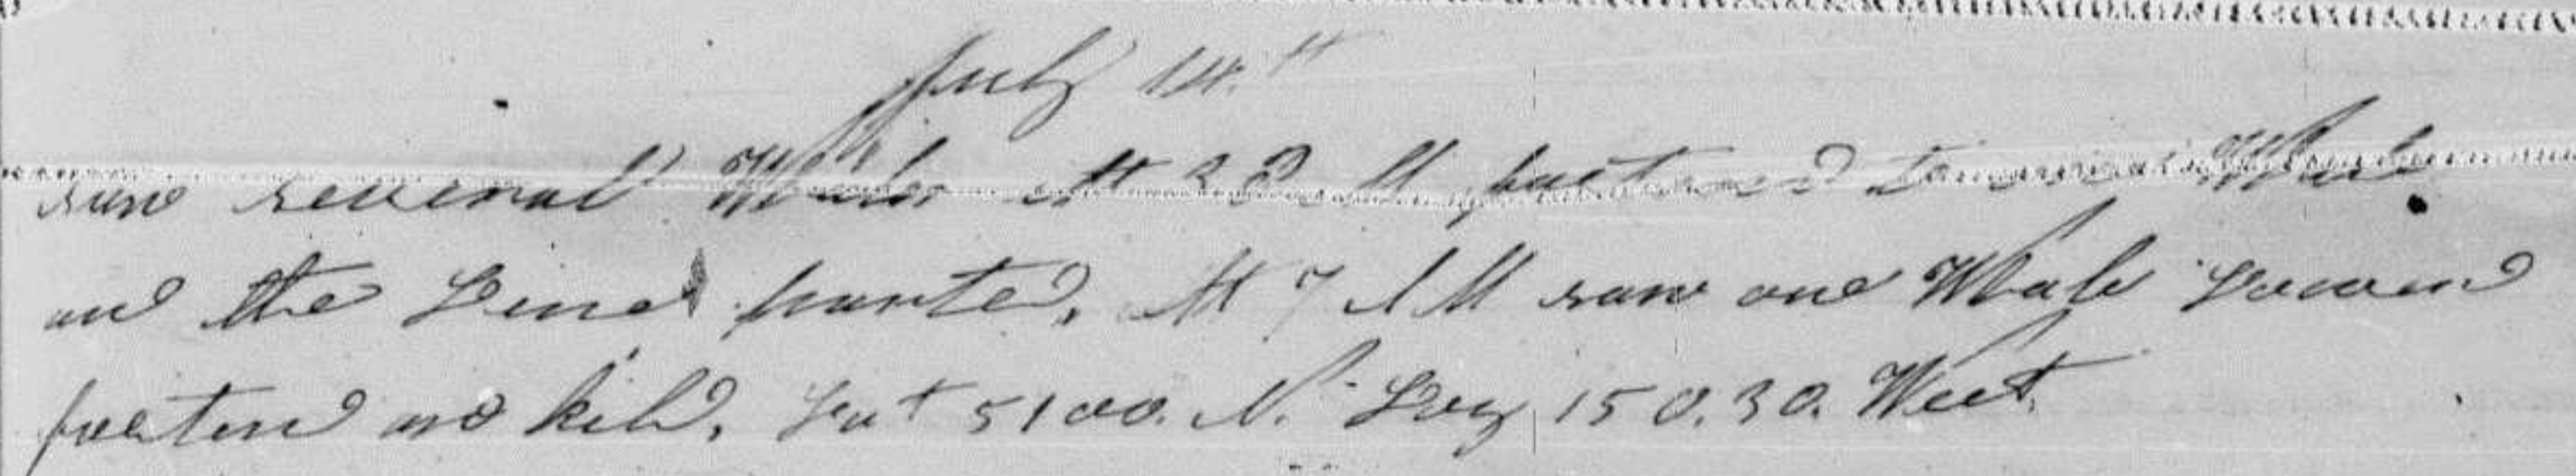 July 14th
saw several Whales At 3 P M fastened to one Whale
and the Line parted, At 7 A M saw one Whale Lowered
fastend and kild, Lat 51 00. N. Long 150.30. West